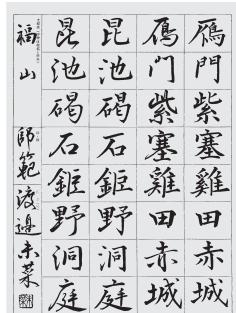 雁門紫塞雞田赤城
雁門紫塞雞田赤城
昆池碣石鉅野洞庭
昆池碣石鉅野洞庭
福山 師範 渡邉未菜